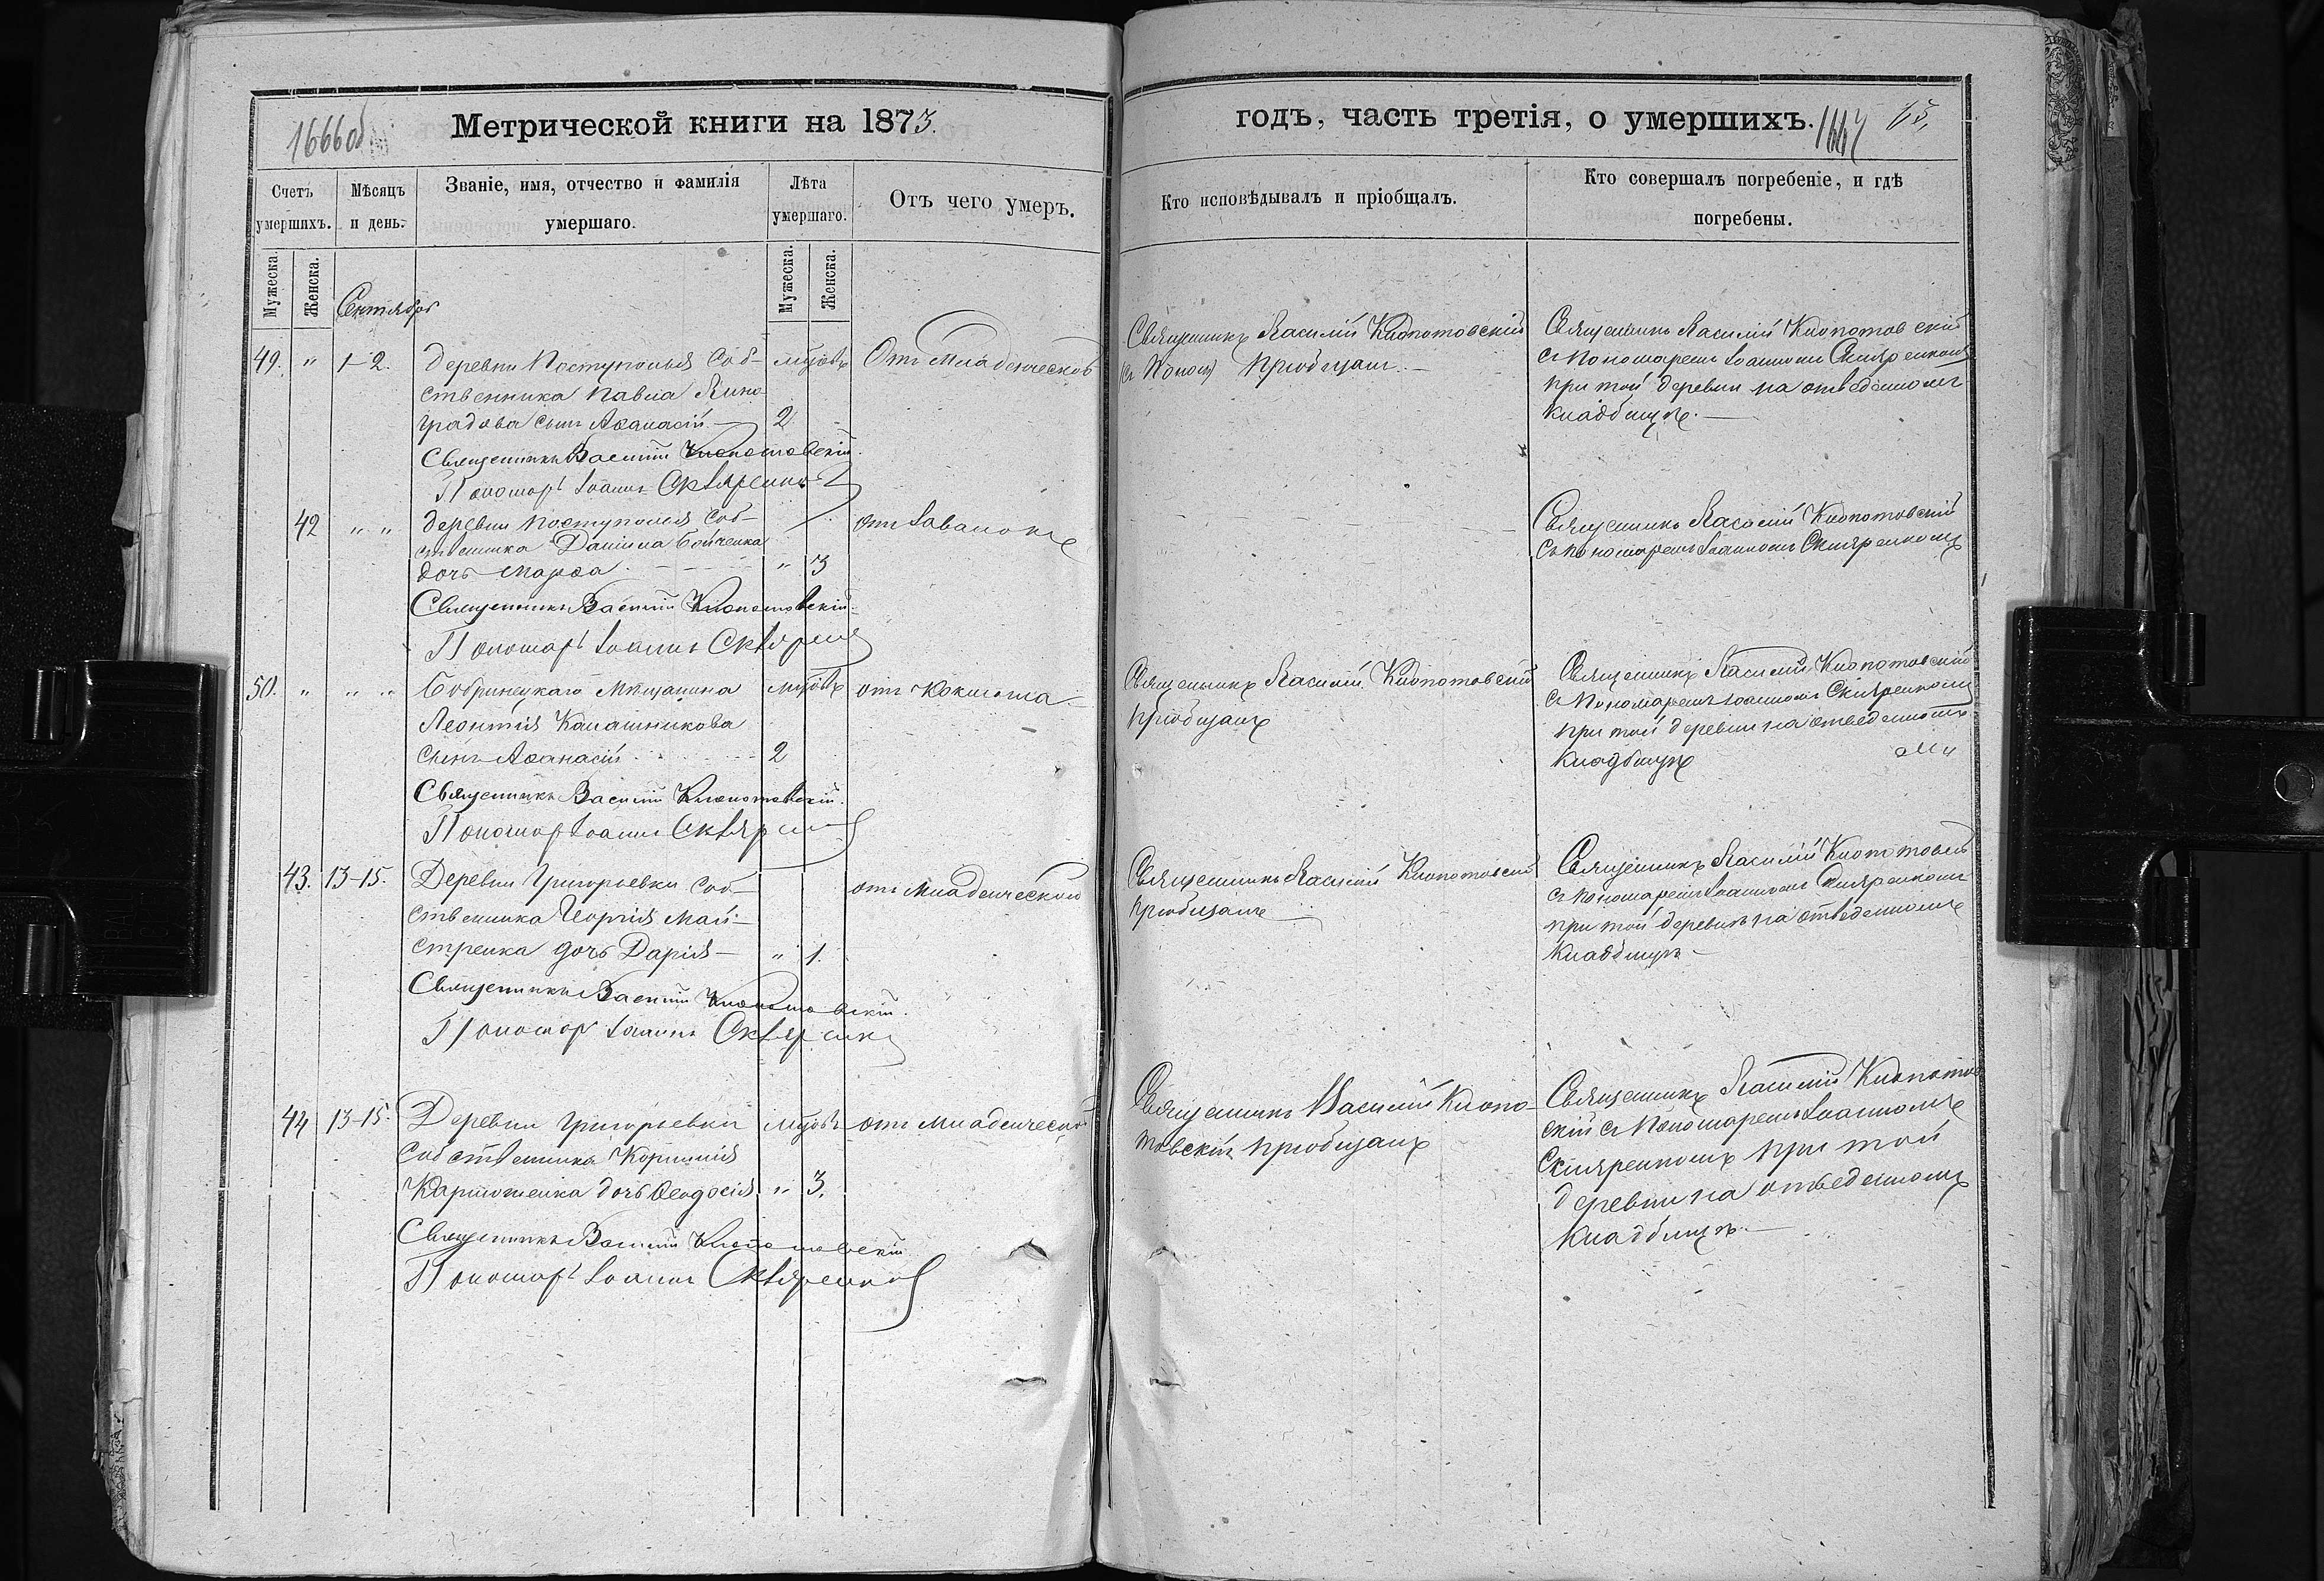 1666 об
Метрической книги на 1873.
Счетъ умершихъ.
Мѣсяцъ и день.
Званіе, имя, отчество и фамилія умершаго.
Лѣта умершаго.
Отъ чего умеръ.
Мужеска.
Женска.
Мужеска.
Женска.
Сентябрь
49. " 1-2. деревни Поступолья Соб- Отъ младенческой
ственника Павла Вино
градова сынъ Аѳанасій — 2
Священникъ Василій Клопотовскій.
Пономарь Іоаннъ Скляренко
42 " " деревни Поступолья Соб-
ственника Даніила Бойченка
дочь Марѳа " 3
Священникъ Василій Клопотовскій
Пономарь Іоаннъ Скляренко
50. " " " Бобринецкаго Мѣщанина отъ Коклюша
Леонтія Калашникова
сынъ Аѳанасій 2
Священникъ Василій Клопотовскій.
Пономарь Іоаннъ Скляренко
43. 13-15. Деревни Григорьевки Соб- отъ младенческой
ственника Георгія Май-
стренка дочь Дарія — " 1.
Священникъ Василій Клопотовскій.
Пономарь Іоаннъ Скляренко
44 13-15. Деревни Григорьевки отъ младенческой
Собственника Корнилія
дочь Ѳеодосія " 3.
Священникъ Василій Клопотовскій
Пономарь Іоаннъ Скляренко
годъ, часть третія, о умершихъ.
1667
Кто исповѣдывалъ и пріобщалъ.
Кто совершалъ погребеніе, и гдѣ погребены.
Священникъ Василій Клопотовскій
Пріобщалъ. —
Священникъ Василій Клопотовскій
съ Пономаремъ Іоанномъ Скляренкомъ
при той деревни на отведенномъ
кладбищѣ. —
Священникъ Василій Клопотовскій
съ пономаремъ Іоанномъ Скляренкомъ
Священникъ Василій Клопотовскій
пріобщалъ
Священникъ Василій Клопотовскій
съ Пономаремъ Іоанномъ Скляренкомъ
при той деревни на отведенномъ
кладбищѣ
Священникъ Василій Клопотовскій
пріобщалъ
Священникъ Василій
съ пономаремъ Іоанномъ Скляренкомъ
при той деревни на отведенномъ
кладбищѣ —
Священникъ Василій Клопо-
товскій пріобщалъ
Священникъ Василій Клопотов
скій съ Пономаремъ Іоанномъ
Скляренкомъ при той
деревни на отведенномъ
кладбищѣ. —